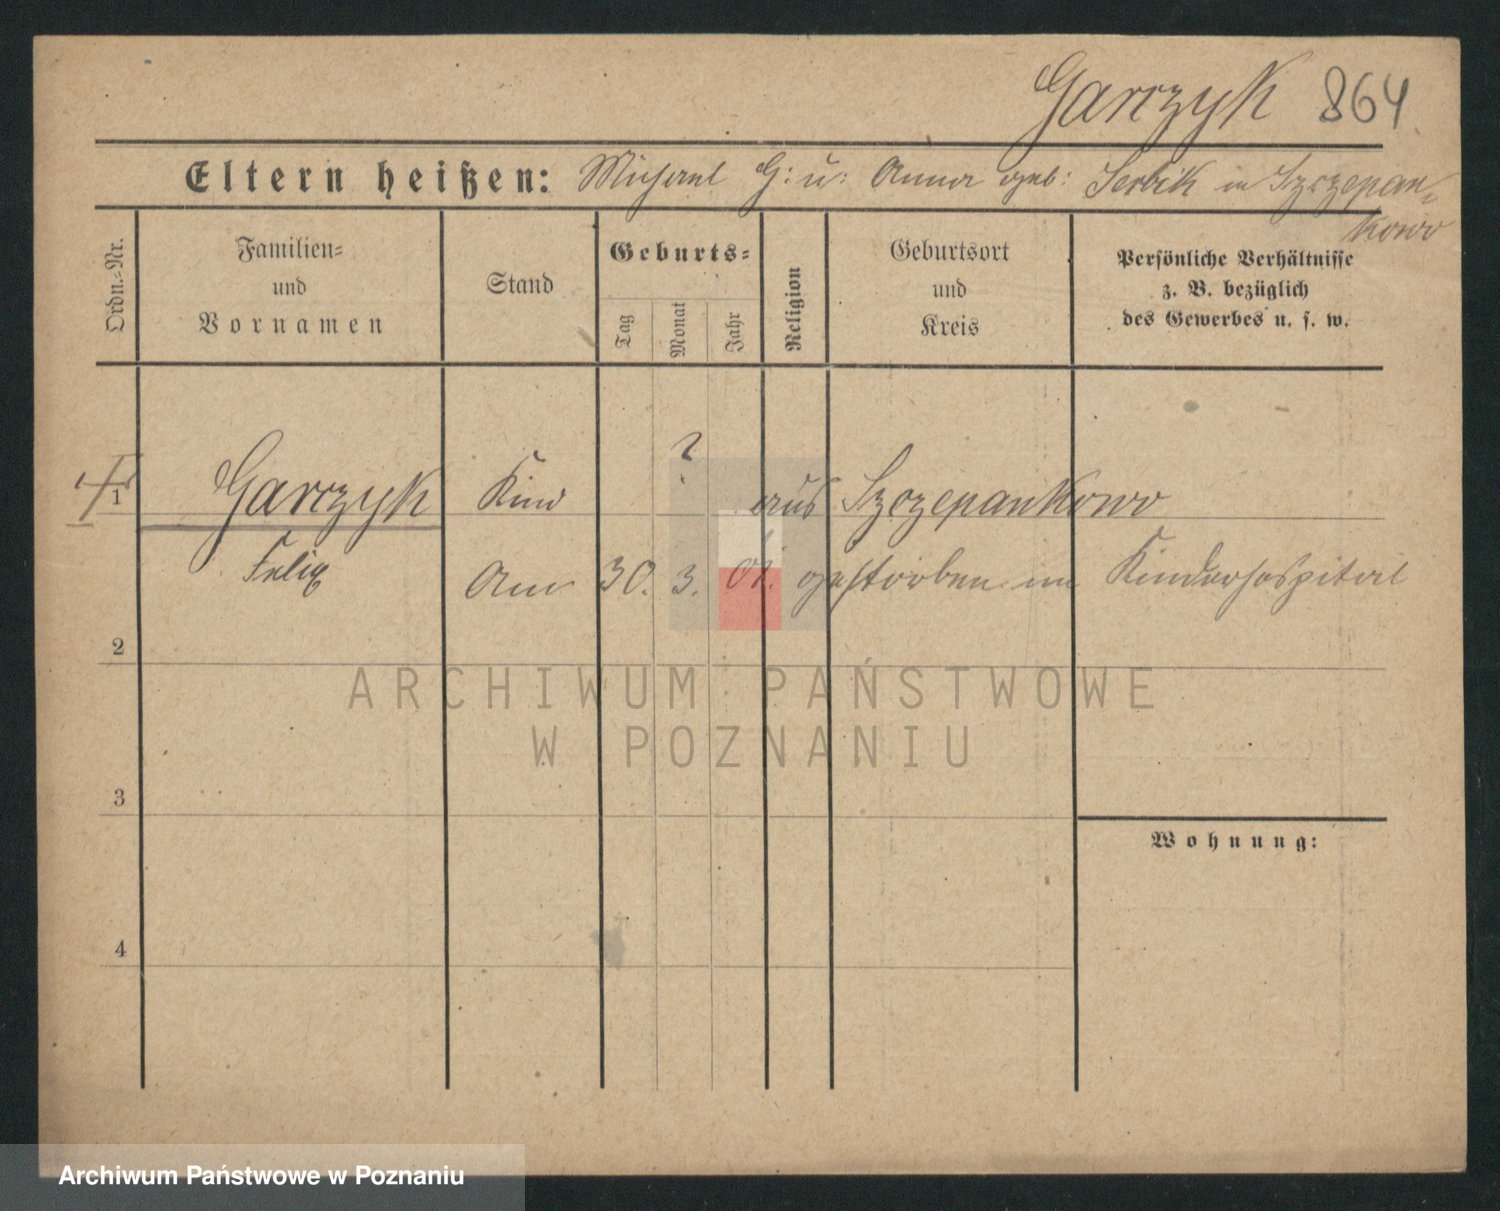 Garczyk 864
Eltern heißen: Michael G: u: Anna geb: Serbik in Szczepan-
kowo
Ordn.=Nr.
Familien=
und
Vornamen
Stand
Geburts=
Tag
Monat
Jahr
Religion
Geburtsort
und
Kreis
Persönliche Verhältnisse
z. B. bezüglich
des Gewerbes u. s. w.
1 Garczyk Kind ? aus Szczepankowo
Felix Am 30. 3. 01. gestorben im Kinderhospital
2
3
4
Wohnung:
ARCHIWUM PAŃSTWOWE
W POZNANIU
Archiwum Państwowe w Poznaniu